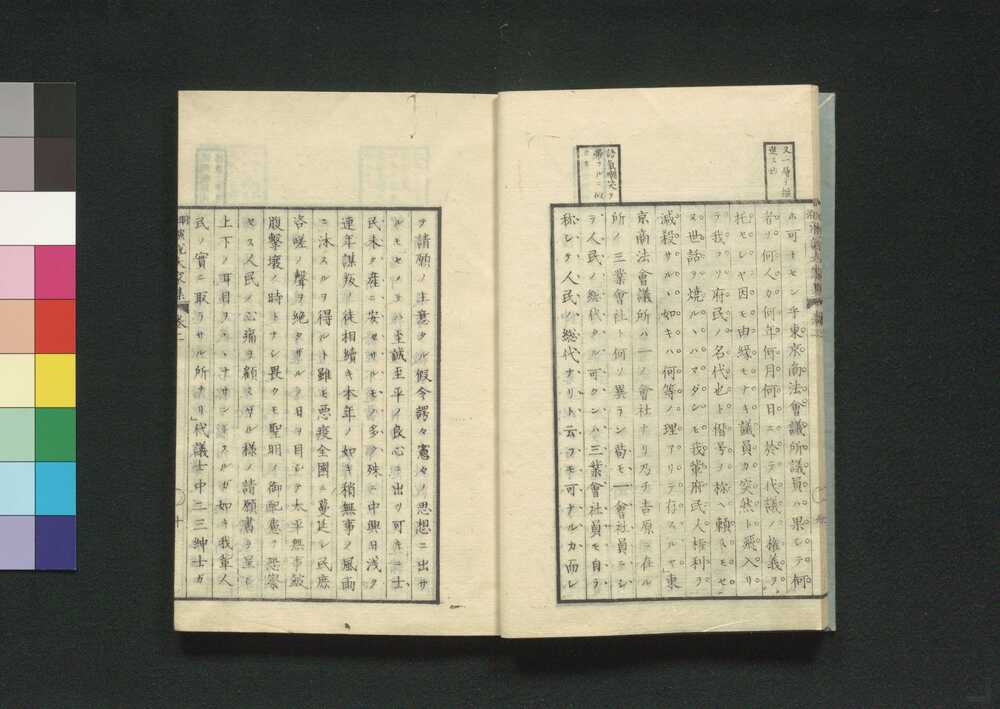 ホ可トモセン乎東京商法會議所議員ハ果シテ何
者ソ何人カ何年何月何日ニ於テ代議ノ權義ヲ
托セシヤ因モ由縁モナキ議員カ突然ト飛入リ
テ我コソ府民ノ名代也ト僣号ヲ称ヘ頼ミモセ
ヌ世話ヲ焼ルヽハマダシモ我輩府民人権利ヲ
滅殺サルヽ如キハ何等ノ理アリテ存スルヤ東
京商法會議所ハ一ノ會社ナリ乃チ吉原ニ在ル
所ノ三業會社ト何ノ異ラン苟モ一會社員ニシ
テ人民ノ総代タル可クンハ三業會社員モ自ラ
称シテ人民ノ総代ナリト云フモ可ナルカ而シ
テ請願ノ主意タル假令諤々蹇々ノ思想ニ出サ
ルモセメテハ至誠至平ノ良心ニ出ツ可キニ士
民未タ産ニ安セサルモノ多ク殊ニ中興日浅ク
連年謀叛ノ徒相續キ本年ノ如キ稍無事ノ風雨
ニ沐スルヲ得ルト雖モ悪疫全國ニ蔓延シ民庶
咨嗟ノ聲ヲ絶タザルノ日ヲ目シテ太平無事鼓
腹撃壌ノ時トナシ畏クモ聖明ノ御配慮ヲ恐察
セス人民ノ心痛ヲ顧ミサル様ノ請願書ヲ呈シ
上下ノ耳目ヲ サントスルガ如キ我輩人
民ノ實ニ取ラサル所ナリ」代議士中二三紳士ガ
巻二
十